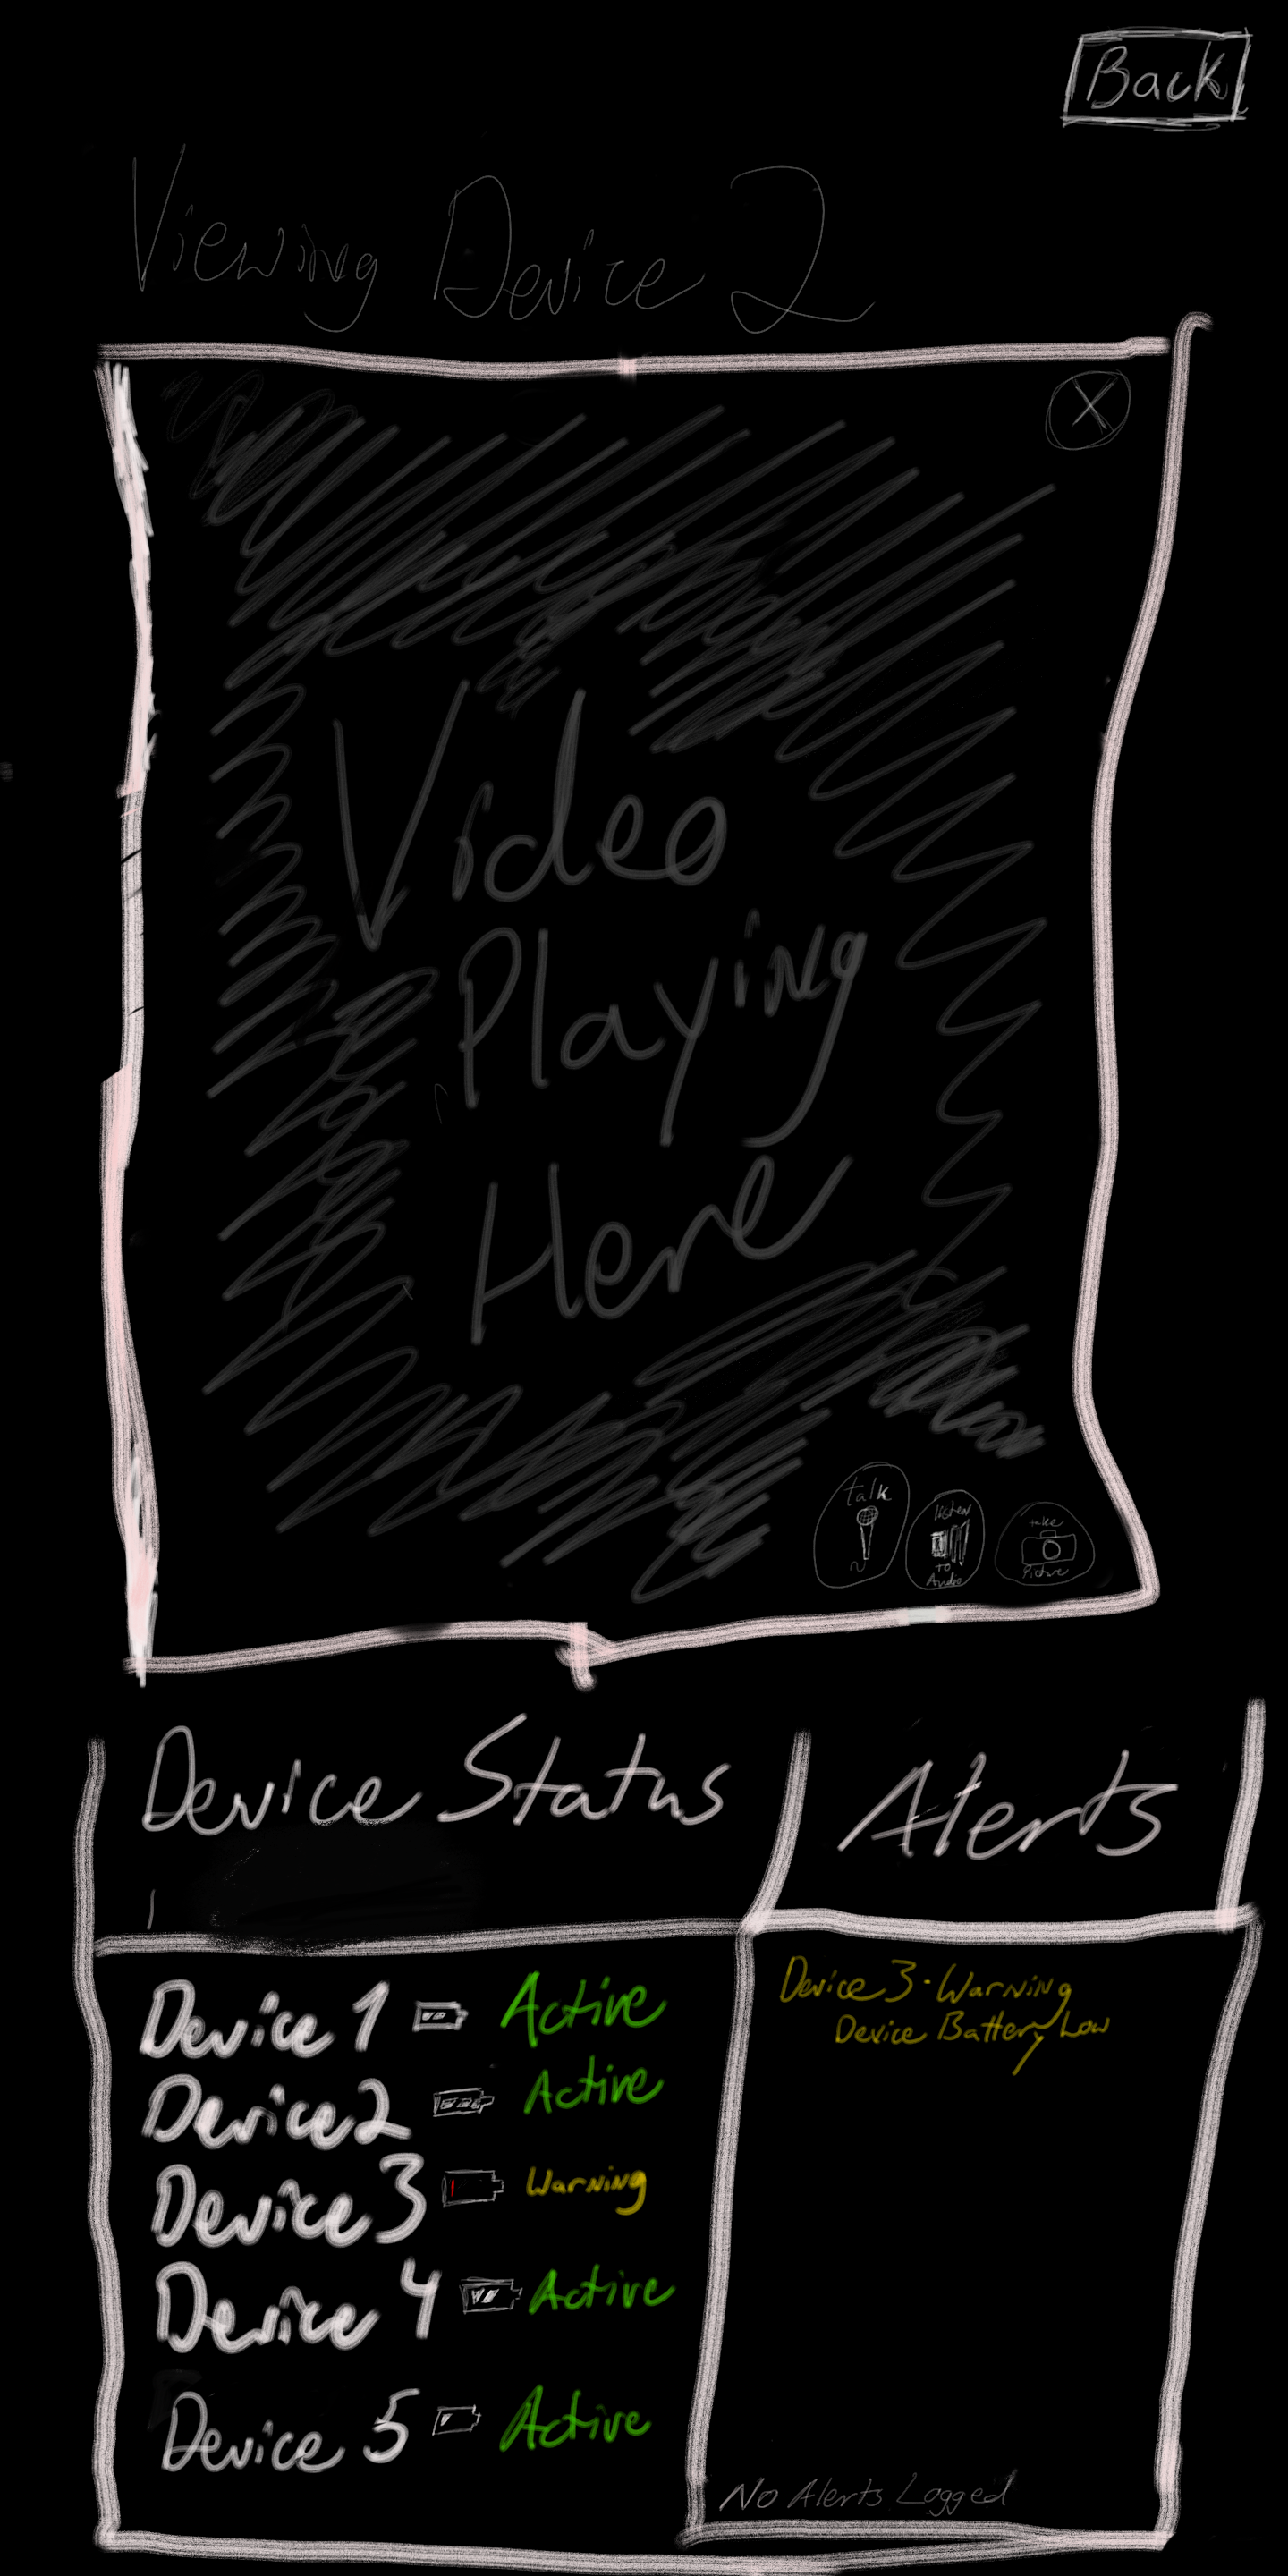 Back
Viewing Device 2
X
Video
Playing
Here
talk
listen
TO
Audio
take
Picture
Device Status
Alerts
Device 1 Active
Device 2 Active
Device 3 Warning
Device 4 Active
Device 5 Active
Device 3 - Warning
Device Battery Low
No Alerts Logged